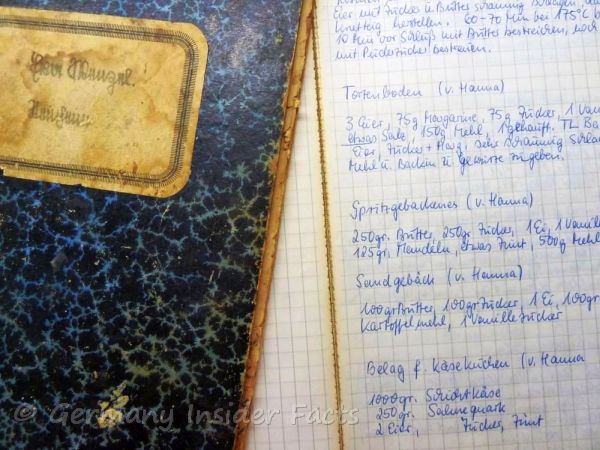 Eier mit Zucker u. Butter schaumig
60-70 Min bei 175°C
10 Min vor Schluß mit Butter bestreichen, noch
mit Puderzucker bestreuen.
Tortenboden (v. Hanna)
3 Eier, 75g Margarine, 75g Zucker, 1 Vani
etwas Salz, 150g Mehl, 1 gehäuft. TL Ba
Eier, Zucker + Marg. sehr schaumig schla
Mehl u. Backin u. gewürze zugeben.
Spritzgebackenes (v. Hanna)
250gr. Butter, 250gr Zucker, 1 Ei, 1 Vanille
125gr. Mandeln, etwas Zimt, 500g Mehl
Sandgebäck (v. Hanna)
100gr Butter, 100gr Zucker, 1 Ei, 100gr
Kartoffelmehl, 1 Vanillezucker
Belag f. Käsekuchen (v. Hanna
1000gr. Schichtkäse
250gr. Sahnequark
2 Eier, Zucker, Zimt
© Germany Insider Facts